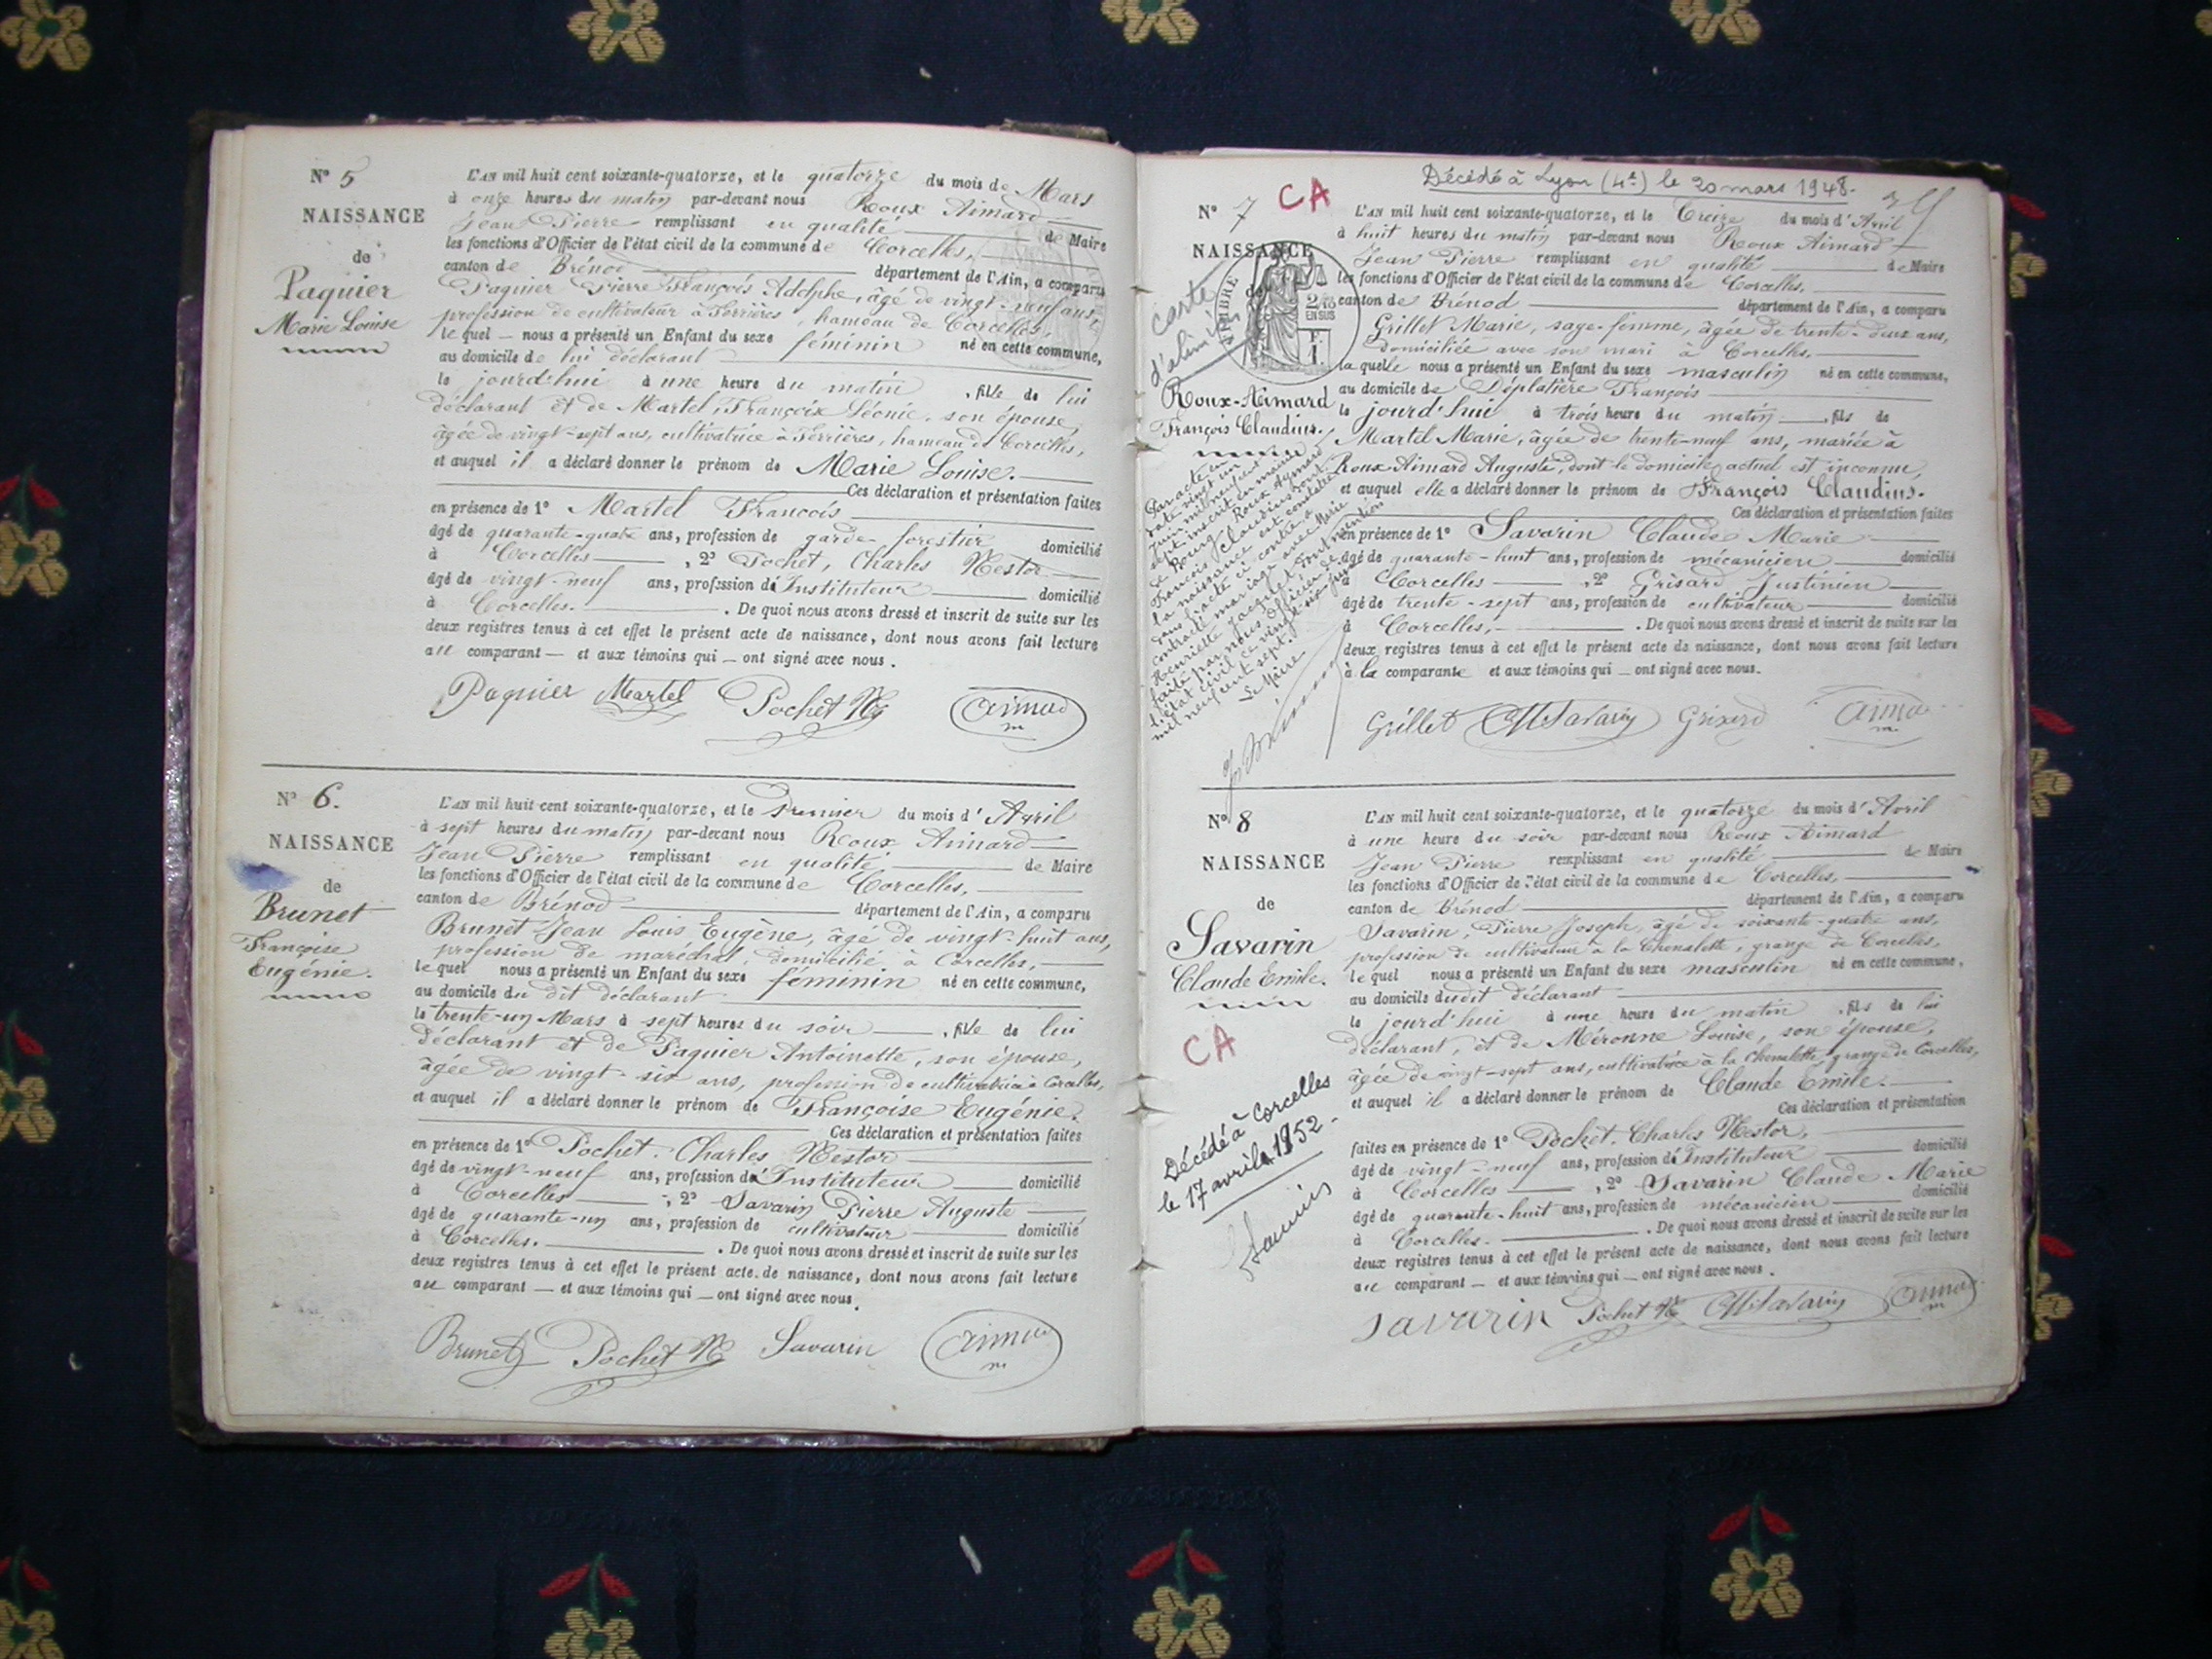 N° 5
NAISSANCE
de
Paquier
Marie Louise
L'AN mil huit cent soixante-quatorze, et le quatorze du mois de Mars
à onze heures du matin par-devant nous Roux Aimard
Jean Pierre remplissant en qualité de Maire
les fonctions d'Officier de l'état civil de la commune de Corcelles,
canton de Brénod département de l'Ain, a comparu
Paquier Pierre François Adolphe, âgé de vingt-neuf ans,
profession de cultivateur à Ferrières, hameau de Corcelles,
lequel nous a présenté un Enfant du sexe féminin né en cette commune,
au domicile de lui déclarant
le jourd'hui à une heure du matin, fille de lui
déclarant et de Martel, Françoise Léonie, son épouse,
âgée de vingt-sept ans, cultivatrice à Ferrières, hameau de Corcelles,
et auquel il a déclaré donner le prénom de Marie Louise.
Ces déclaration et présentation faites
en présence de 1° Martel François
âgé de quarante-quatre ans, profession de garde forestier domicilié
à Corcelles, 2° Pochet, Charles Nestor
âgé de vingt-neuf ans, profession d'Instituteur domicilié
à Corcelles. De quoi nous avons dressé et inscrit de suite sur les
deux registres tenus à cet effet le présent acte de naissance, dont nous avons fait lecture
au comparant — et aux témoins qui — ont signé avec nous.
Paquier Martel Pochet Nr Aimard
N° 6.
NAISSANCE
de
Brunet
Françoise
Eugénie.
L'AN mil huit cent soixante-quatorze, et le Premier du mois d'Avril
à sept heures du matin par-devant nous Roux Aimard
Jean Pierre remplissant en qualité de Maire
les fonctions d'Officier de l'état civil de la commune de Corcelles,
canton de Brénod département de l'Ain, a comparu
Brunet Jean Louis Eugène, âgé de vingt-huit ans,
profession de maréchal, domicilié à Corcelles,
lequel nous a présenté un Enfant du sexe féminin né en cette commune,
au domicile du dit déclarant
le trente-un Mars à sept heures du soir, fille de lui
déclarant et de Paquier Antoinette, son épouse,
âgée de vingt-six ans, profession de cultivatrice à Corcelles,
et auquel il a déclaré donner le prénom de Françoise Eugénie.
Ces déclaration et présentation faites
en présence de 1° Pochet, Charles Nestor
âgé de vingt-neuf ans, profession d'Instituteur domicilié
à Corcelles, 2° Savarin Pierre Auguste
âgé de quarante-un ans, profession de cultivateur domicilié
à Corcelles. De quoi nous avons dressé et inscrit de suite sur les
deux registres tenus à cet effet le présent acte de naissance, dont nous avons fait lecture
au comparant — et aux témoins qui — ont signé avec nous.
Brunet Pochet Nr Savarin Aimard
Décédé à Lyon (4e) le 20 mars 1948.
N° 7 CA
NAISSANCE
de
TIMBRE
2/10
EN SUS
carte
d'alim
Roux-Aimard
François Claudius.
L'AN mil huit cent soixante-quatorze, et le Treize du mois d'Avril
à huit heures du matin par-devant nous Roux Aimard
Jean Pierre remplissant en qualité de Maire
les fonctions d'Officier de l'état civil de la commune de Corcelles,
canton de Brénod département de l'Ain, a comparu
Grillet Marie, sage-femme, âgée de trente-deux ans,
domiciliée avec son mari à Corcelles,
laquelle nous a présenté un Enfant du sexe masculin né en cette commune,
au domicile de Déplatière François
le jourd'hui à trois heure du matin, fils de
Martel Marie, âgée de trente-neuf ans, mariée à
Roux-Aimard Auguste, dont le domicile actuel est inconnu,
et auquel elle a déclaré donner le prénom de François Claudius.
Ces déclaration et présentation faites
en présence de 1° Savarin Claude Marie
âgé de quarante-huit ans, profession de mécanicien domicilié
à Corcelles, 2° Grisard Justinien
âgé de trente-sept ans, profession de cultivateur domicilié
à Corcelles, De quoi nous avons dressé et inscrit de suite sur les
deux registres tenus à cet effet le présent acte de naissance, dont nous avons fait lecture
à la comparante et aux témoins qui — ont signé avec nous.
Par acte en
date vingt un
juin mil neuf cent
sept inscrit en mairie
Roux Aymard
François Claudius dont
la naissance est constatée
dans l'acte ci-contre a
contracté mariage avec Marie
Henriette Jacquet dont mention
faite par nous Officier de
l'état civil ce vingt-six juin
mil neuf cent sept.
Le Maire
Grillet CM Savarin Grisard Aimard
N° 8
NAISSANCE
de
Savarin
Claude Emile.
CA
Décédé à Corcelles
le 17 avril 1952.
L'AN mil huit cent soixante-quatorze, et le quatorze du mois d'Avril
à une heure du soir par-devant nous Roux Aimard
Jean Pierre remplissant en qualité de Maire
les fonctions d'Officier de l'état civil de la commune de Corcelles,
canton de Brénod département de l'Ain, a comparu
Savarin, Pierre Joseph, âgé de soixante-quatre ans,
profession de cultivateur à la Chenalette, grange de Corcelles,
lequel nous a présenté un Enfant du sexe masculin né en cette commune,
au domicile dudit déclarant
le jourd'hui à une heure du matin, fils de lui
déclarant, et de Méronne Louise, son épouse,
âgée de vingt-sept ans, cultivatrice à la Chenalette, grange de Corcelles,
et auquel il a déclaré donner le prénom de Claude Emile.
Ces déclaration et présentation
faites en présence de 1° Pochet, Charles Nestor,
âgé de vingt-neuf ans, profession d'Instituteur domicilié
à Corcelles, 2° Savarin Claude Marie
âgé de quarante-huit ans, profession de mécanicien domicilié
à Corcelles. De quoi nous avons dressé et inscrit de suite sur les
deux registres tenus à cet effet le présent acte de naissance, dont nous avons fait lecture
au comparant — et aux témoins qui — ont signé avec nous.
Savarin Pochet Nr CM Savarin Aimard